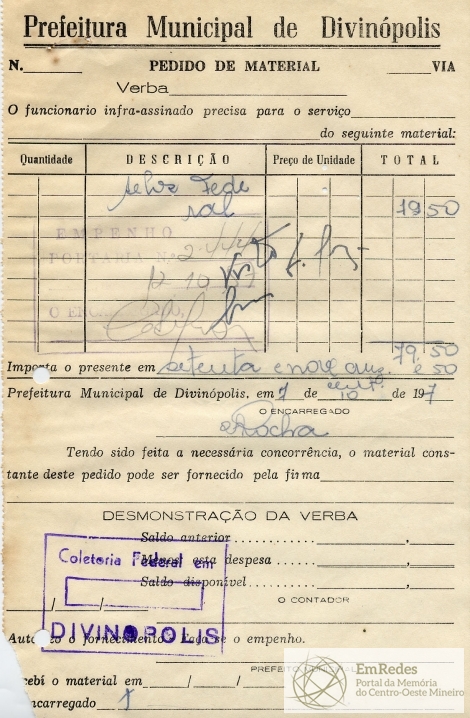 Prefeitura Municipal de Divinópolis
N. PEDIDO DE MATERIAL VIA
Verba
O funcionario infra-assinado precisa para o serviço
do seguinte material:
Quantidade DESCRIÇÃO Preço de Unidade TOTAL
selos Fede
ral 79 50
EMPENHO
PORTARIA N.º
12 10
O ENCARREGADO
79.50
Importa o presente em setenta e nove e 50
Prefeitura Municipal de Divinópolis, em 7 de 10 de 197
O ENCARREGADO
Rocha
Tendo sido feita a necessária concorrência, o material cons-
tante deste pedido pode ser fornecido pela firma
DESMONSTRAÇÃO DA VERBA
Saldo anterior
Menos esta despesa
Saldo disponível
Coletoria Federal em
DIVINOPOLIS
O CONTADOR
/ /
Autorizo o fornecimento. Faça-se o empenho.
PREFEITO MUNICIPAL
Recebí o material em / /
Encarregado
EmRedes
Portal da Memória
do Centro-Oeste Mineiro